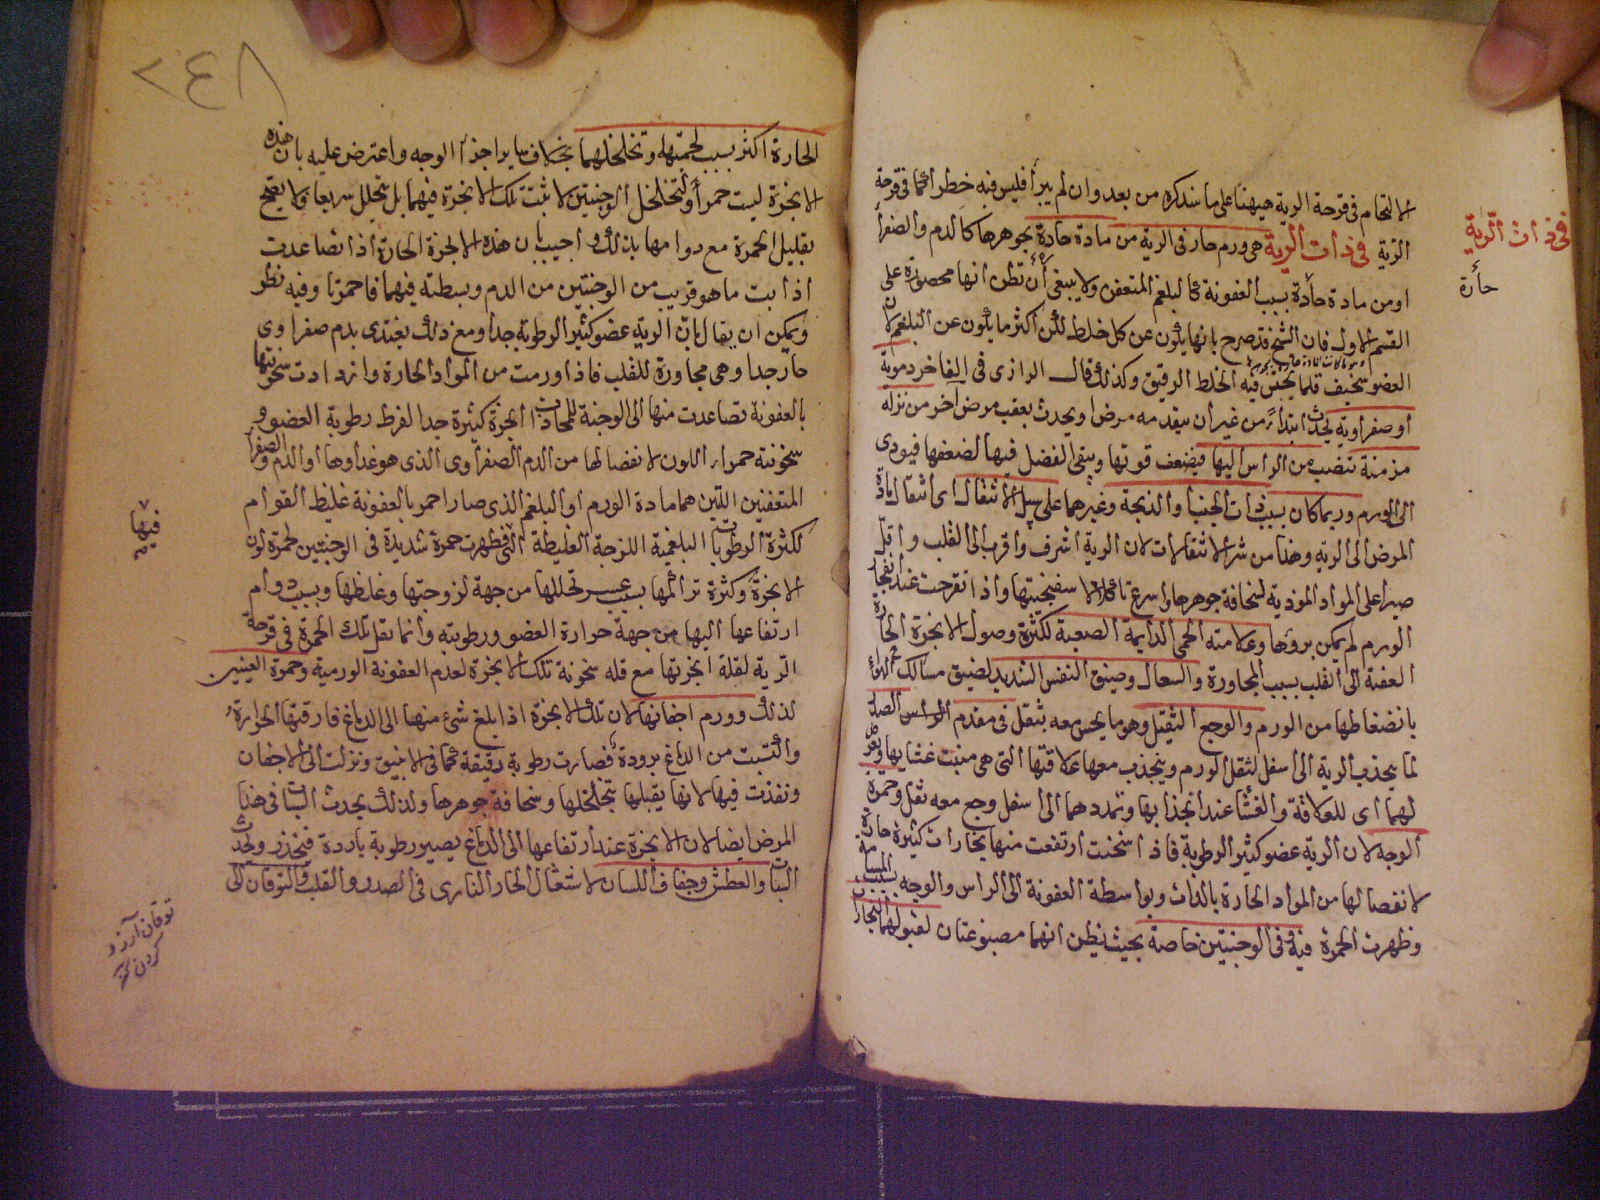 الالتحام فى قرحة الرية هيهنا على ما سنذكره من بعد وان لم يبرأ فليس فيه خطر كما فى قرحة
الرية فى ذات الرية هى ورم حار فى الرية من مادة حارة بجوهرها كالدم والصفرأ
او من مادة حادة بسبب العفونة كالبلغم المتعفن ولا ينبغى أن تظن انها محصورة على
القسم الاول فان الشيخ قد صرح بانها يكون عن كل خلط لكن اكثر ما يكون عن البلغم لان
العضو سخيف قلما يحتبس فيه الخلط الرقيق وكذلك قال الرازى فى الفاخر دموية
أو صفراوية يحدث ابتداءً من غير ان يتقدمه مرض او يحدث بعقب مرض آخر من نزلة
مزمنة تنصب من الراس اليها فيضعف قوتها ويبقى الفضل فيها لضعفها فيودى
الى الورم وربما كان بسبب ذات الجنب أو الذبحة وغيرهما على سبيل الانتقال اى انتقال مادة
المرض الى الرية وهذا من شر الانتقالات لان الرية اشرف واقرب الى القلب واقل
صبرا على المواد الموذية لسخافة جوهرها واسرع تاكلا لاسفنجيتها واذا تقرحت عند انفجار
الورم لم يمكن بروها وعلامته الحمى الدايمة الصعبة لكثرة وصول الابخرة الحارة
العفنة الى القلب بسبب المجاورة والسعال وضيق النفس الشديد لضيق مسالك الهوأ
بانضغاطها من الورم والوجع الثقيل وهو ما يحس معه بثقل فى مقدم الراس الصدر
لما ينجذب الرية الى اسفل لثقل الورم وينجذب معها علاقتها التى هى منبت غشايها ويعرض
لهما اى للعلاقة والغشا عند انجذابها وتمددهما الى اسفل وجع معه ثقل وحمرة
الوجه لان الرية عضو كثير الرطوبة فاذا سخنت ارتفعت منها بخارات كثيرة حارة
لانفصالها من المواد الحارة بالذات وبواسطة العفونة الى الراس والوجه بسبب المسامتة
وظهرت الحمرة فيه وفى الوجنتين خاصة بحيث يظن انهما مصبوغتان لقبولهما البخار
فى ذات الرية
حارة
٢٤٨
الحارة اكثر بسبب لحميتهما وتخلخلهما بخلاف ساير اجزأ الوجه واعترض عليه بان هذه
الابخرة ليست حمرأ ولتخلخل الوجنتين لا تثبت تلك الابخرة فيهما بل يتحلل سريعا ولا يصح
تعليل الحمرة مع دوامها بذلك واجيب بان هذه الابخرة الحارة اذا تصاعدت
اذابت ما هو قريب من الوجنتين من الدم وبسطته فيهما فاحمرتا وفيه نظر
ويمكن ان يقال بان الرية عضو كثير الرطوبة جدا ومع ذلك يغتدى بدم صفراوى
حار جدا وهى مجاورة للقلب فاذا ورمت من المواد الحارة وازدادت سخونتها
بالعفونة تصاعدت منها الى الوجنة للمحاذات ابخرة كثيرة جدا لفرط رطوبة العضو و
سخونته حمراء اللون لانفصالها من الدم الصفراوى الذى هو غداوها او الدم والصفرا
المتعفنين اللتين هما مادة الورم او البلغم الذى صار احمر بالعفونة غليظ القوام
لكثرة الرطوبات البلغمية اللزجة الغليظة التى فظهرت حمرة شديدة فى الوجنتين لحمرة لون
الابخرة وكثرة تراكمها بسبب عسر تحللها من جهة لزوجتها وغلظها وبسبب دوام
ارتفاعها اليها من جهة حرارة العضو ورطوبته وانما تقل تلك الحمرة فى قرحة
الرية لقلة ابخرتها مع قلة سخونة تلك الابخرة لعدم العفونة الورمية وحمرة العينين
لذلك وورم اجفانها لان تلك الابخرة اذا بلغ شئ منها الى الدماغ فارقتها الحرارة
واكتسبت من الدماغ برودة فصارت رطوبة رقيقة كما فى الانبيق ونزلت الى الاجفان
ونفذت فيها لانها يقبلها بتخلخلها وسخافة جوهرها ولذلك يحدث السبات فى هذا
المرض ايضا لان الابخرة عند ارتفاعها الى الدماغ يصير رطوبة باردة فيخدر ويحدث
السبات والعطش وجفاف اللسان لاشتعال الحار النارى فى الصدر والقلب والتوقان الى
فيها
توقان آرزو
كردن